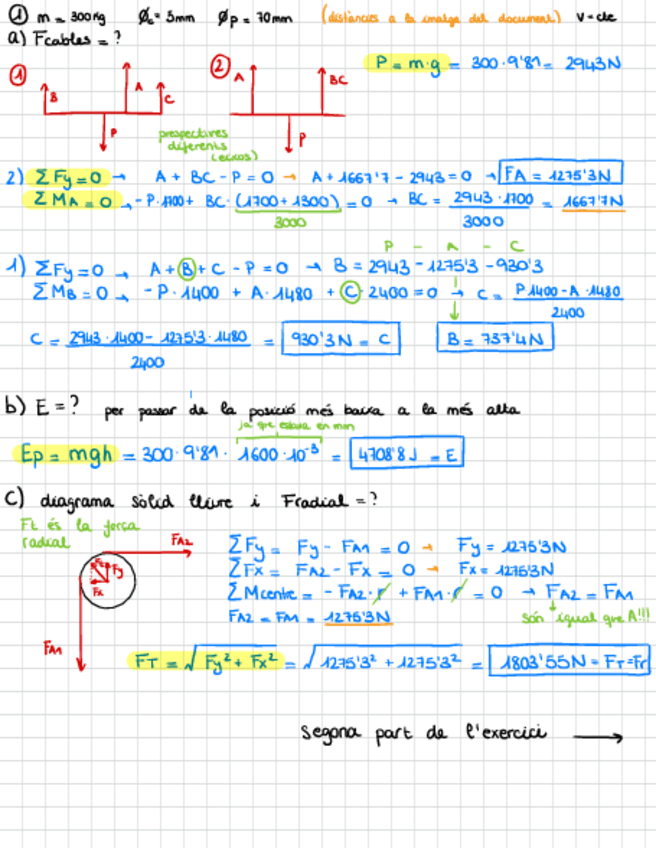 ① m = 300kg Øc = 5mm Øp = 70mm (distàncies a la imatge del document) v=cte
a) Fcables = ?
P = m·g = 300·9'81 = 2943N
① B A C P
② A BC P
prespectives diferents (eixos)
2) ΣFy=0 → A + BC - P = 0 → A + 1667'7 - 2943 = 0 → FA = 1275'3N
ΣMA = 0 → -P·1700 + BC·(1700+1300) = 0 → BC = 2943·1700 / 3000 = 1667'7N
3000
P - A - C
1) ΣFy=0 → A + B + C - P = 0 → B = 2943 - 1275'3 - 930'3
ΣMB = 0 → -P·1400 + A·1480 + C·2400 = 0 → C = P·1400 - A·1480 / 2400
C = 2943·1400 - 1275'3·1480 / 2400 = 930'3N = C B = 737'4N
b) E = ? per passar de la posició més baixa a la més alta
ja que estava en mm
Ep = mgh = 300·9'81·1600·10⁻³ = 4708'8J = E
c) diagrama sòlid lliure i Fradial = ?
Ft és la força radial
FA2
Fy
Fx
FA1
ΣFy = Fy - FA1 = 0 → Fy = 1275'3N
ΣFx = FA2 - Fx = 0 → Fx = 1275'3N
ΣMcentre = -FA2·r + FA1·r = 0 → FA2 = FA1
FA2 = FA1 = 1275'3N són igual que A!!!
FT = √Fy² + Fx² = √1275'3² + 1275'3² = 1803'55N = FT = Fr
Segona part de l'exercici →